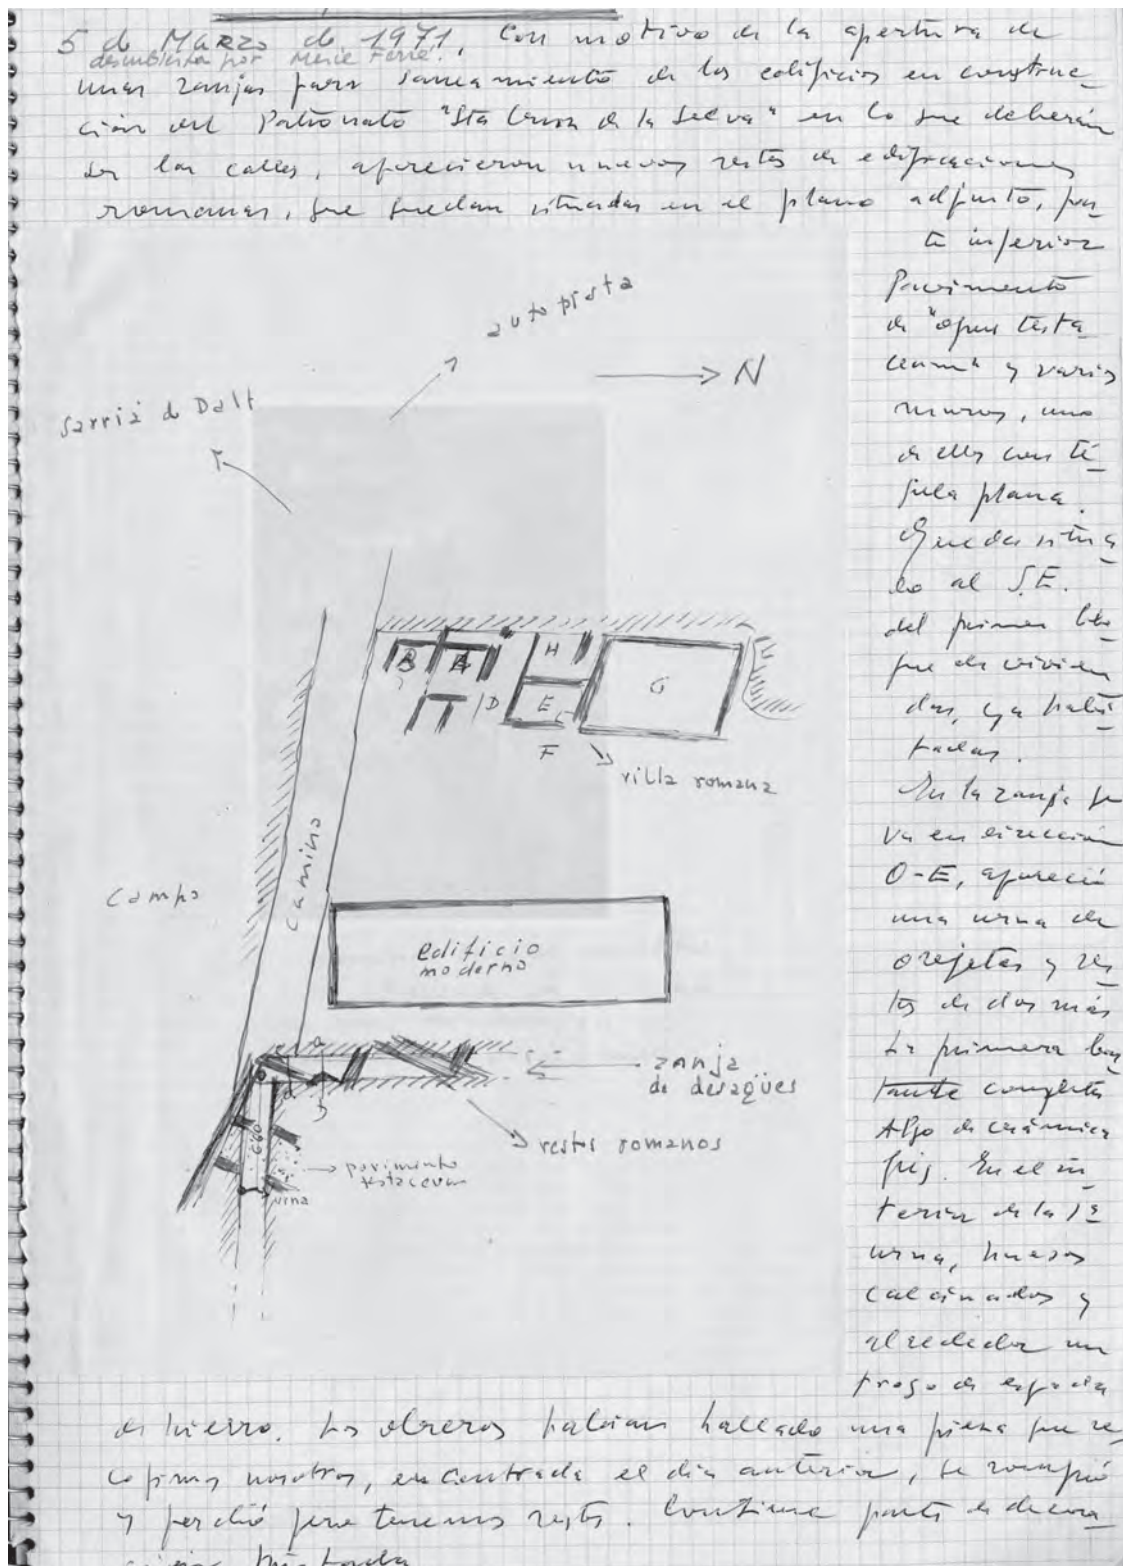 5 de MARZO de 1971. Con motivo de la apertura de
descubierta por Mercé Ferré.
unas zanjas para saneamiento de los edificios en construc_
ción del Patronato "Sta Creu de la Selva" en lo que deberán
ser las calles, aparecieron nuevos restos de edificaciones
romanas, que quedan situadas en el plano adjunto, par_
te inferior
Pavimento
de "opus testa_
ceum" y varios
muros, uno
de ellos con te_
gula plana.
Queda situa
do al S.E.
del primer blo_
que de vivien
das, ya habi_
tadas.
En la zanja que
va en dirección
O-E, apareció
una urna de
orejetas y res_
tos de dos más
La primera bas
tante completa
Algo de cerámica
gris. En el in_
terior de la 1ª
urna, huesos
calcinados y
alrededor un
trozo de espada
de hierro. Los obreros habian hallado una pieza que re_
cogimos nosotros, encontrada el dia anterior, se rompió
y perdió pero tenemos restos. Contiene parte de decora_
pintada
autopista
N
Sarriá de Dalt
B
A
H
G
D
E
C
F
villa romana
Camino
Campo
edificio
moderno
zanja
de desagües
restos romanos
pavimento
testaceum
urna